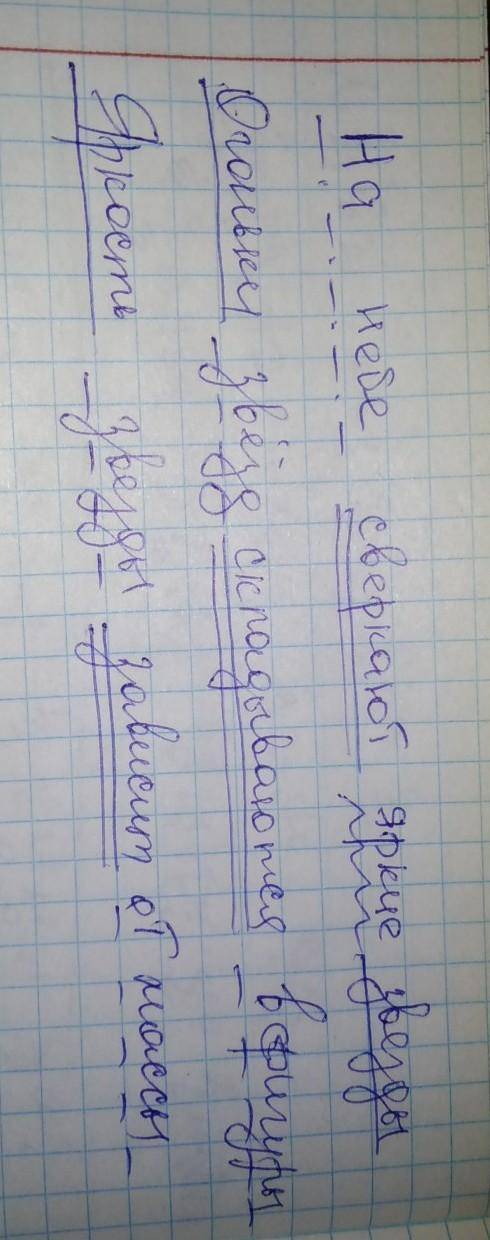 На небе сверкают яркие звезды
Огоньки звёзд складываются в фигуры
Яркость звезды зависит от массы